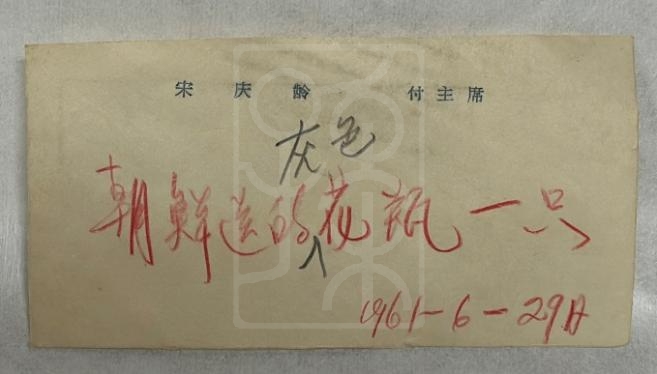 宋庆龄 付主席
灰色
朝鲜送的花瓶一只
1961-6-29日